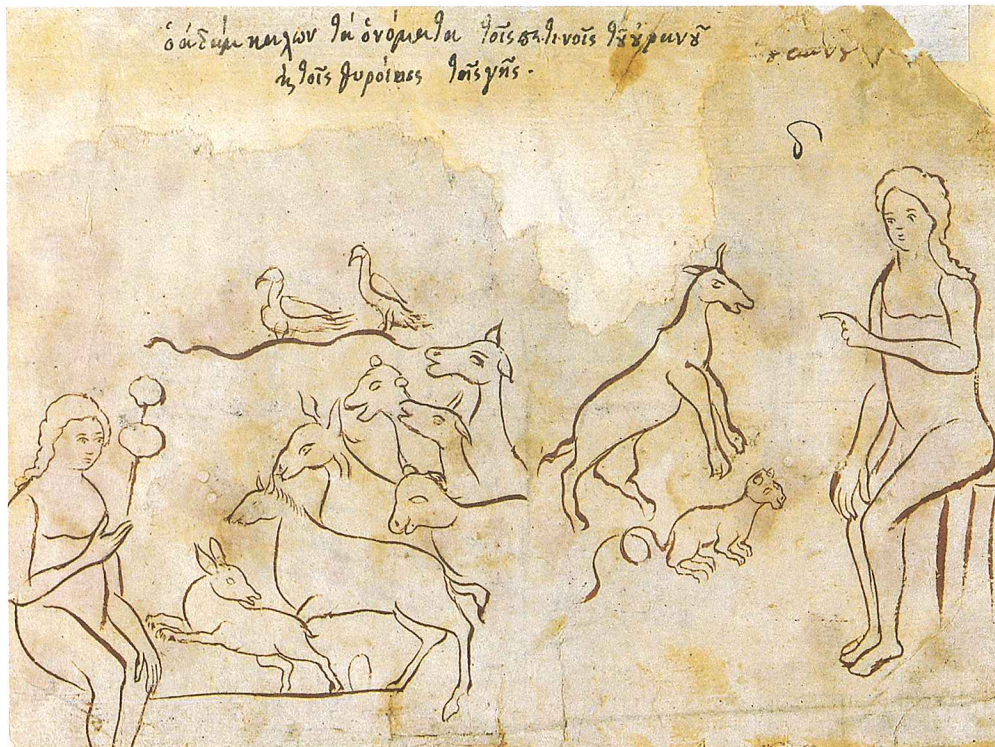 ὁ ἀδάμ καλῶν τὰ ὀνόματα τοῖς πετινοῖς τοῦ οὐρανοῦ
καὶ τοῖς θυρίοις τῆς γῆς.
δ